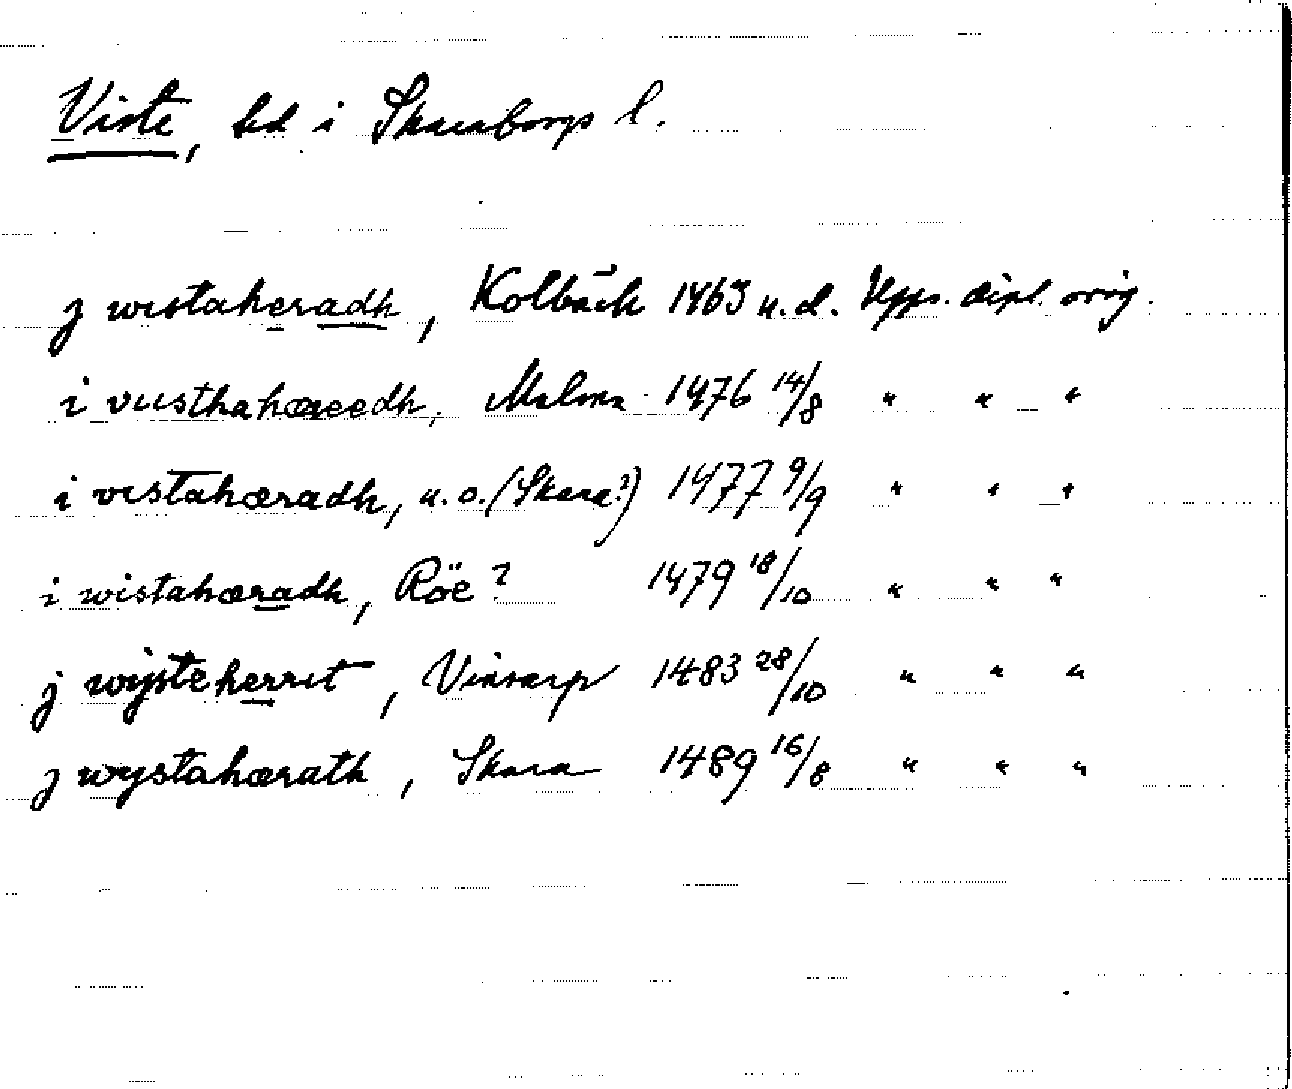 Viste, hd i Skaraborgs l.
j wistaheradh, Kolbäck 1463 u.d. Upps. dipl. orig.
i viisthahæreedh, Malma 1476 14/8 " " "
i vistahæradh, u.o. (Skara?) 1477 9/9 " " "
i wistahæradh, Röe? 1479 18/10 " " "
j wijsteherrit, Vinsarp 1483 28/10 " " "
j wystahærath, Skara 1489 16/8 " " "